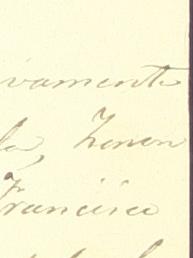 ivamente
la, Zenon
Francisco